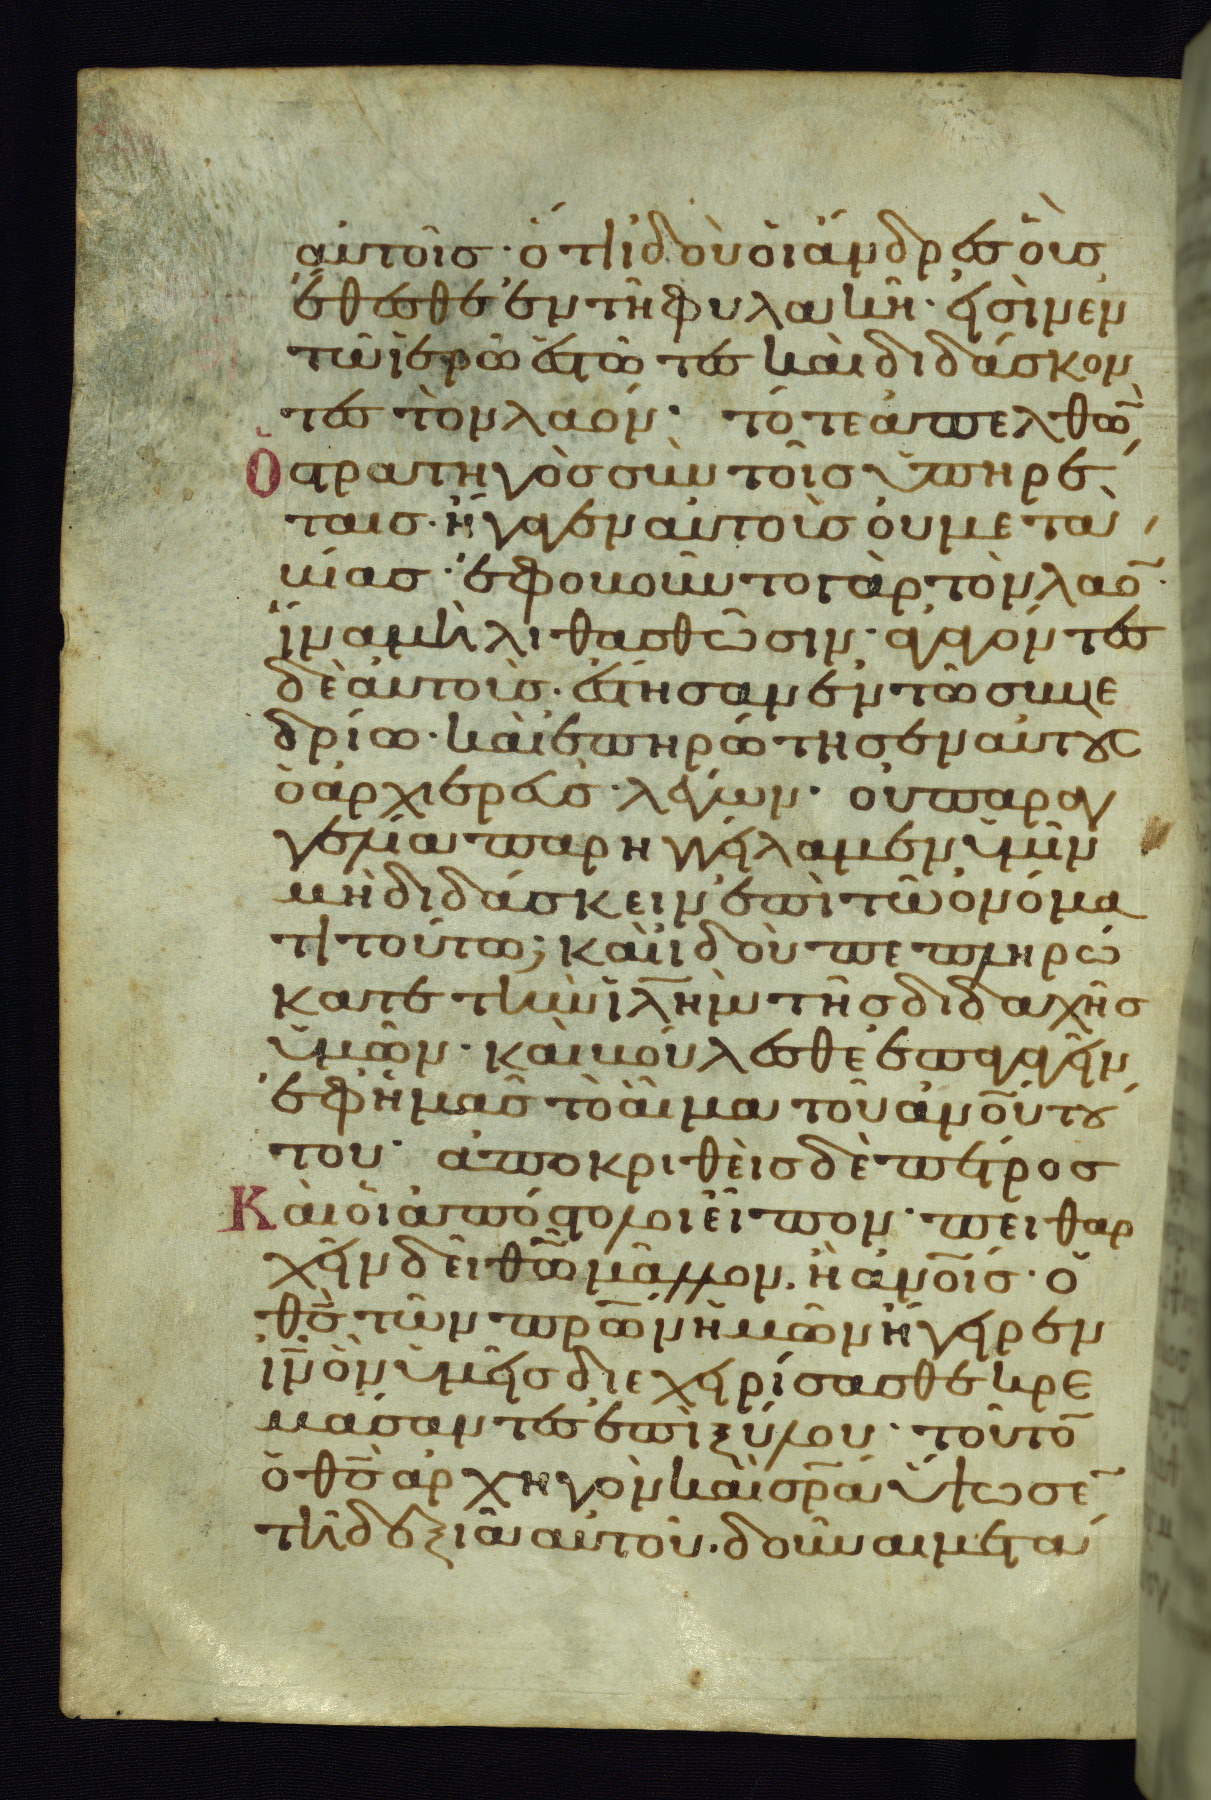 αὐτοῖς· ὅτι ἰδοὺ οἱ ἄνδρες οὓς
ἔθεσθε ἐν τῇ φυλακῇ· εἰσὶν ἐν
τῶ ἱερῶ ἑστῶτες καὶ διδάσκον
τες τὸν λαόν· τότε ἀπελθῶ̅
Ὁ στρατηγὸς σὺν τοῖς ὑπηρέ
ταις· ἤγαγεν αὐτοὺς οὐ μετὰ
βίας· ἐφοβοῦντο γὰρ τὸν λαο̅·
ἵνα μὴ λιθασθῶσιν· ἀγαγόντες
δὲ αὐτοὺς· ἔστησαν ἐν τῶ συνε
δρίω· καὶ ἐπηρώτησεν αὐτοὺς
ὁ ἀρχιερεὺς· λέγων· οὐ παραγ
γελία παρηγγείλαμεν ὑμῖν
μὴ διδάσκειν ἐπὶ τῶ ὀνόμα
τι τούτω; καὶ ἰδοὺ πεπληρώ
κατε τὴν ἰλ̅ημ τῆς διδαχῆς
ὑμῶν· καὶ βούλεσθε ἐπαγαγεῖν
ἐφ' ἡμᾶς τὸ αἷμα τοῦ ἀνο̅υ τού
του· ἀποκριθεὶς δὲ πέτρος
Καὶ οἱ ἀπόστολοι εἶπον· πειθαρ
χεῖν δεῖ θω̅ μᾶλλον, ἢ ἀνο̅ις· ὁ
θς̅ τῶν πρω̅ν ἡμῶν ἤγειρεν
ιν̅ ὃν ὑμεῖς διεχειρίσασθε κρε
μάσαντες ἐπὶ ξύλου· τοῦτο̅
ὁ θς̅ ἀρχηγὸν καὶ σρ̅α ὕψωσε̅
τῆ δεξιᾶ αὐτοῦ· δοῦναι μετά